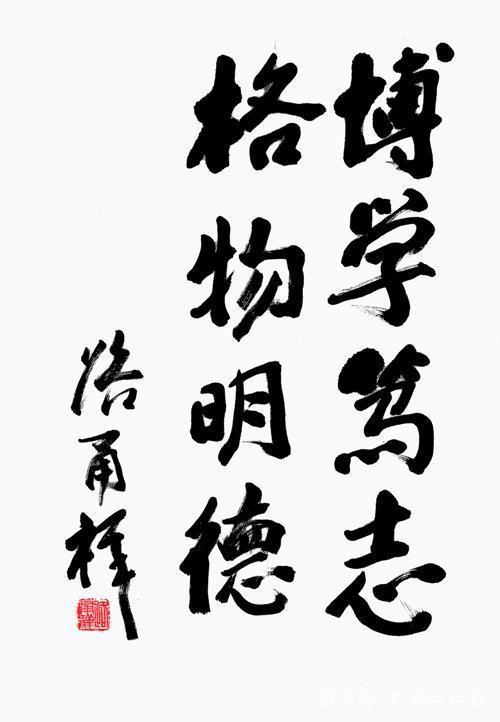 博学笃志
格物明德
路甬祥
百家号/教育点点看